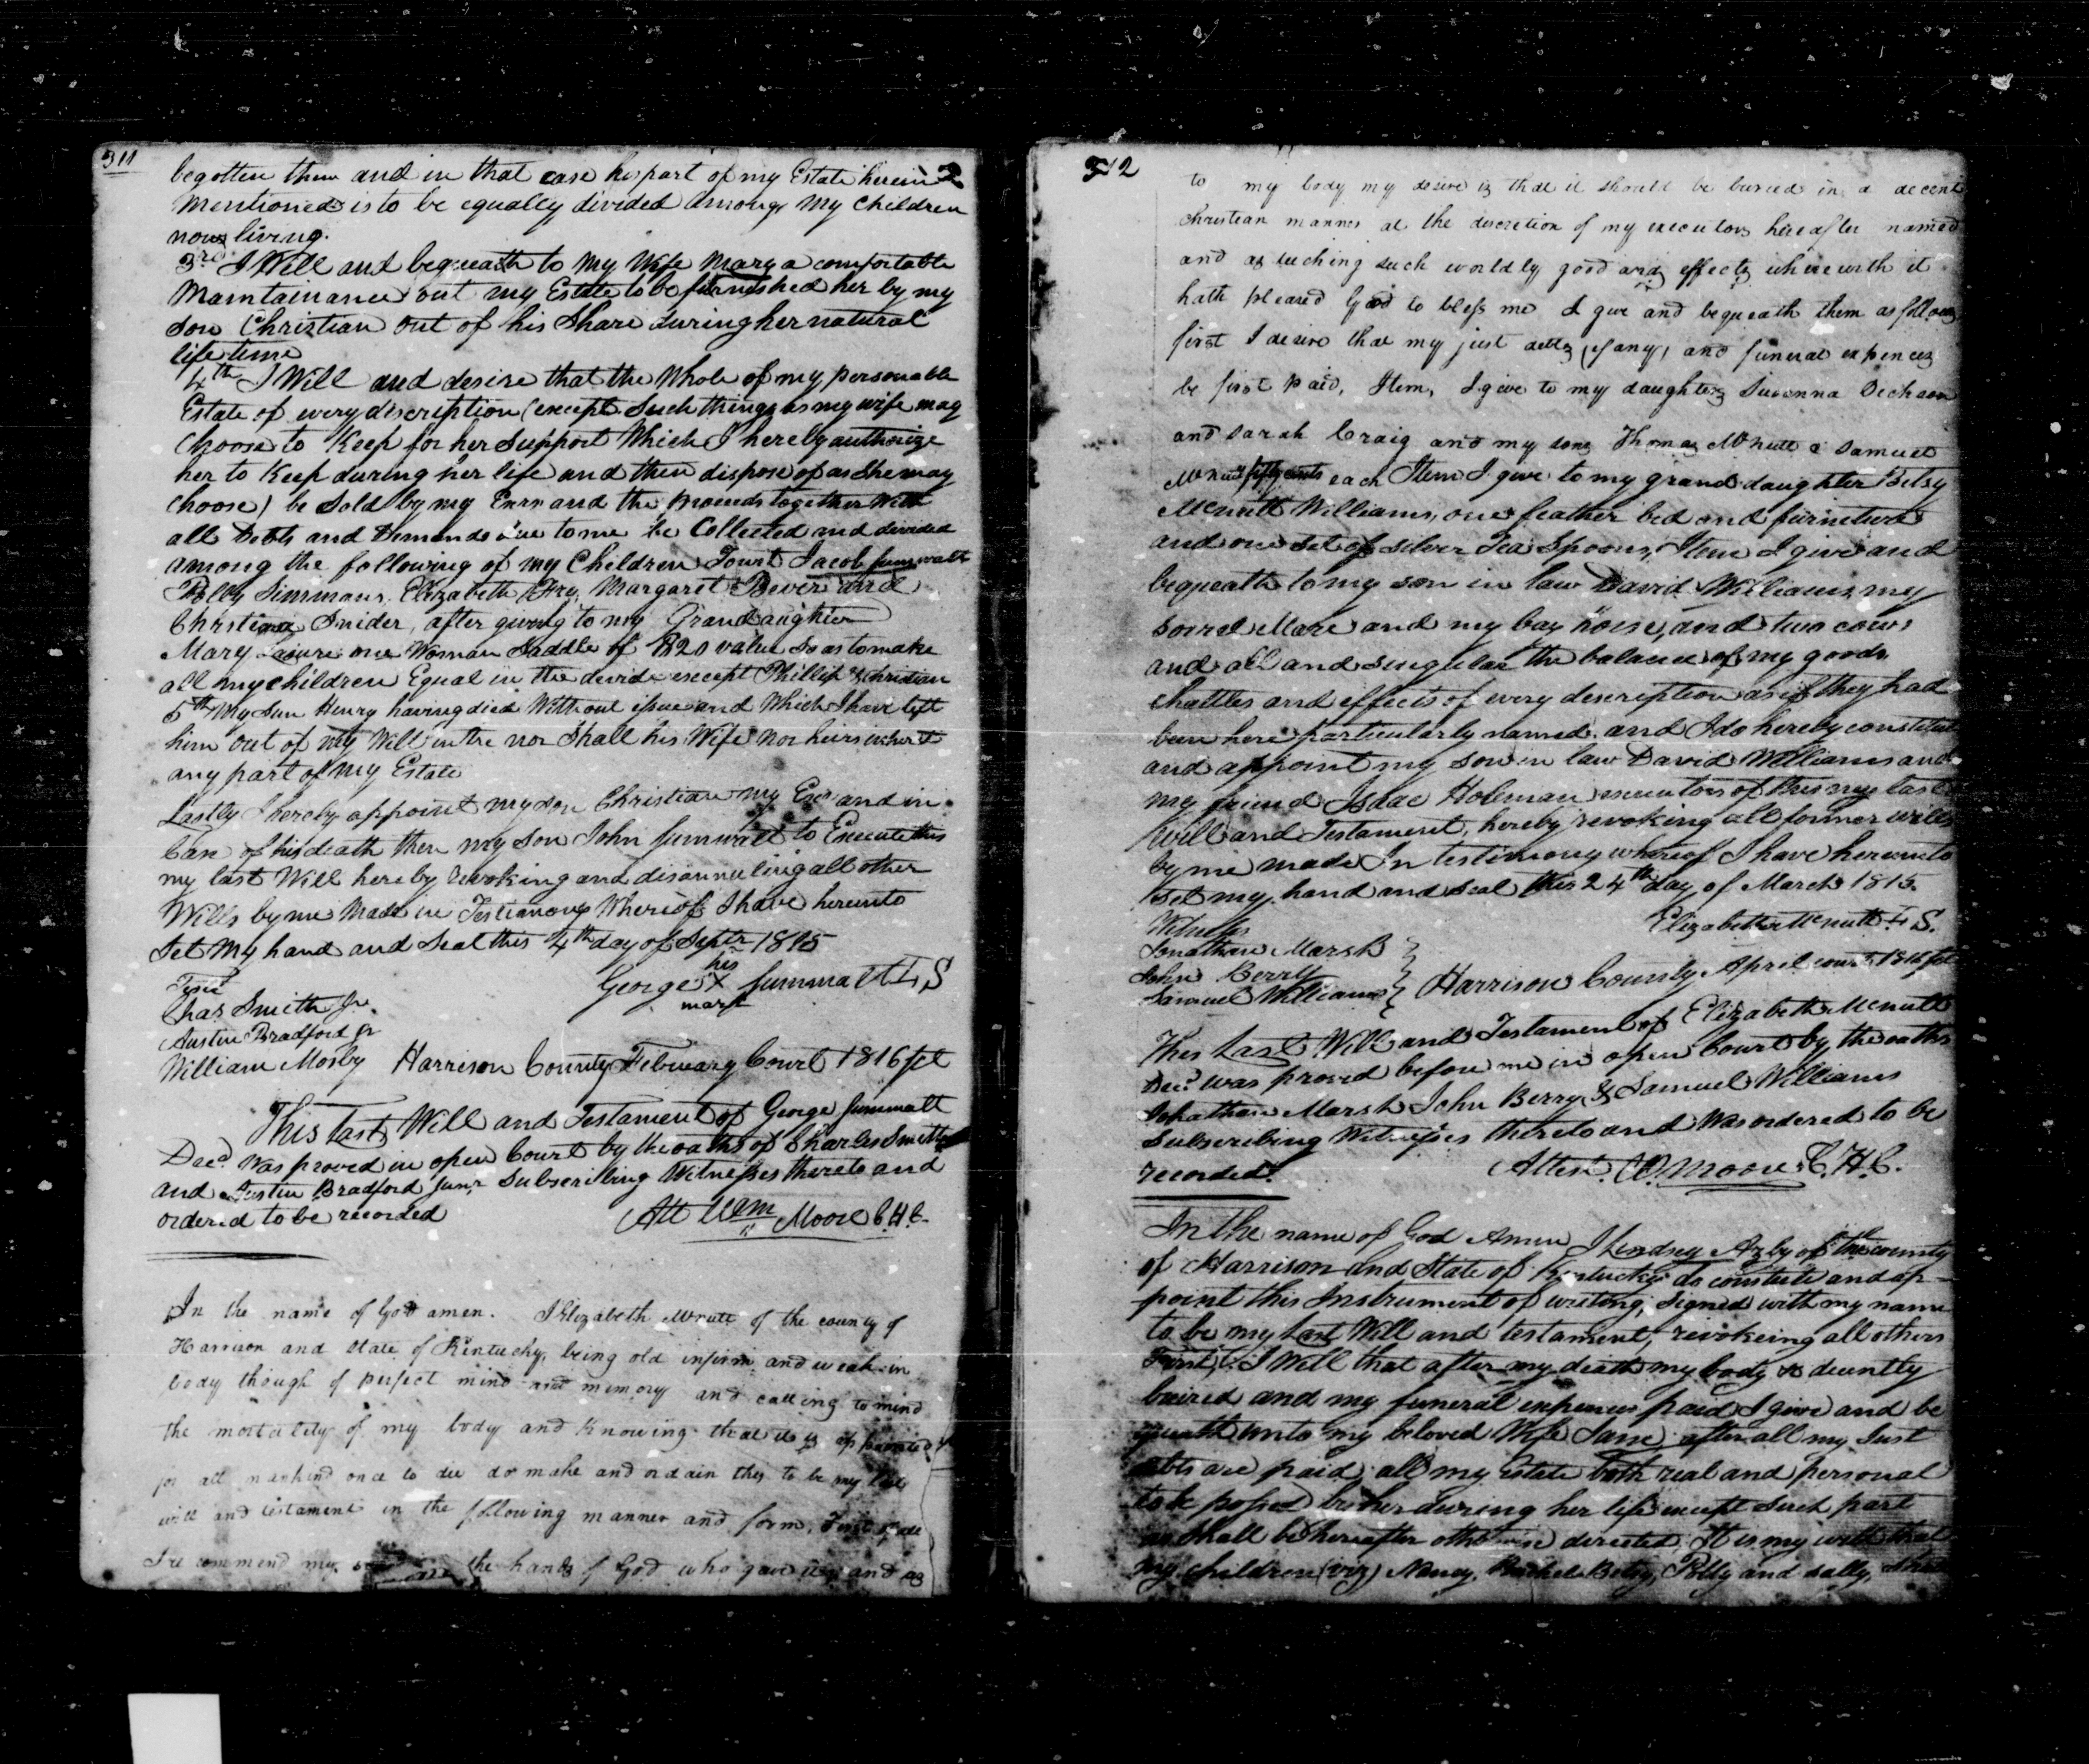 311
begotten them and in that case his part of my Estate herein
Mentioned is to be equally divided among my Children
now living.
3rd I Will and bequeath to My Wife Mary a comfortable
Maintainance out my Estate to be furnished her by my
son Christian out of his Share during her natural
life time
4th I Will and desire that the Whole of my personable
Estate of every discription (except Such things as my wife may
Choose to Keep for her Support Which I hereby authorize
her to Keep during her life and then dispose of as she may
Choose) be Sold by my Exrr and the proceeds together With
all Debts and Demands due to me be Collected and devided
among the following of my Children Towit Jacob Jumwalt
Polly Simmans, Elizabeth Fry, Margaret Bever and
Christiana Snider, after giving to my Grandaughter
Mary one Woman Saddle of $20 value So as to make
all my children Equal in the devide except Phillip & Christian
5th My Son Henry having died Without issue and Which I have left
him out of my Will intire nor Shall his Wife nor heirs inherit
any part of my Estate
Lastly I hereby appoint my son Christian my Exor and in
Case of his death then my son John Jumwalt to Execute this
my last Will hereby revoking and disannuling all other
Wills by me Made in Testimony Whereof I have hereunto
Set My hand and Seal this 4th day of Septr 1815
his
George X Jumwalt L S
mark
Test
Chas Smith Jr.
Austin Bradford Jr
William Mosby Harrison County February Court 1816 Sct
This Last Will and Testament of George Jumwalt
Decd. Was proved in open Court by the oaths of Charles Smith
and Austin Bradford Junr. Subscribing Witnesses thereto and
ordered to be recorded
Att Wm Moore C.H.C.
In the name of God amen. I Elizabeth McNutt of the county of
Harrison and state of Kentucky, being old infirm and weak in
body though of perfect mind and memory and calling to mind
the mortality of my body and knowing that it is appointed
for all mankind once to die do make and ordain this to be my last
will and testament in the following manner and form, First of all
I recommend my the hands of God who gave it and as
312
to my body my desire is that it should be buried in a decent
christian manner at the discretion of my executors hereafter named
and as tuching such worldly good and effects wherewith it
hath pleased God to bless me I give and bequeath them as follows
first I desire that my just debts (if any) and funeral expences
be first paid, Item, I give to my daughters Suvanna Dechason
and Sarah Craig and my sons Thomas McNutt & Samuel
McNutt fifty cents each Item I give to my grand daughter Betsy
Mcnutt Williams, one feather bed and furniture
and one set of silver Tea Spoons, Item I give and
bequeath to my son in law David Williams my
sorrel Mare and my bay horse, and two cows
and all and singular the balance of my goods
chattles and effects of every description as if they had
been here particularly named. and I do hereby constitute
and appoint my son in law David Williams and
my friend Isaac Holeman executors of this my last
Will and Testament, hereby revoking all former wills
by me made In testimony whereof I have hereunto
set my hand and seal this 24th day of March 1815.
Witness
Elizabeth Mcnutt L S.
Jonathan Marsh
John Berry
Samuel Williams Harrison County April court 1816 Sct
This Last Will and Testament of Elizabeth Mcnutt
Decd. was proved before me in open Court by the oaths
Johathan Marsh John Berry & Samuel Williams
Subscribing Witnesses thereto and Was ordered to be
recorded.
Attest. W. Moore C.H.C.
In the name of God Amen I Lindsey Azby of the county
of Harrison and State of Kentucky do constute and ap-
point this Instrument of writing, signed with my name
to be my Last Will and testament, revokeing all others
First, I Will that after my death my body be decently
buired and my funeral expences paid I give and be
queath unto my beloved Wife Jane after all my Just
debts are paid, all my Estate both real and personal
to be possed by her during her life except Such part
as Shall be hereafter otherwise directed. It is my will that
my children (viz) Nancy, Rachel Betsy, Polly and Sally,